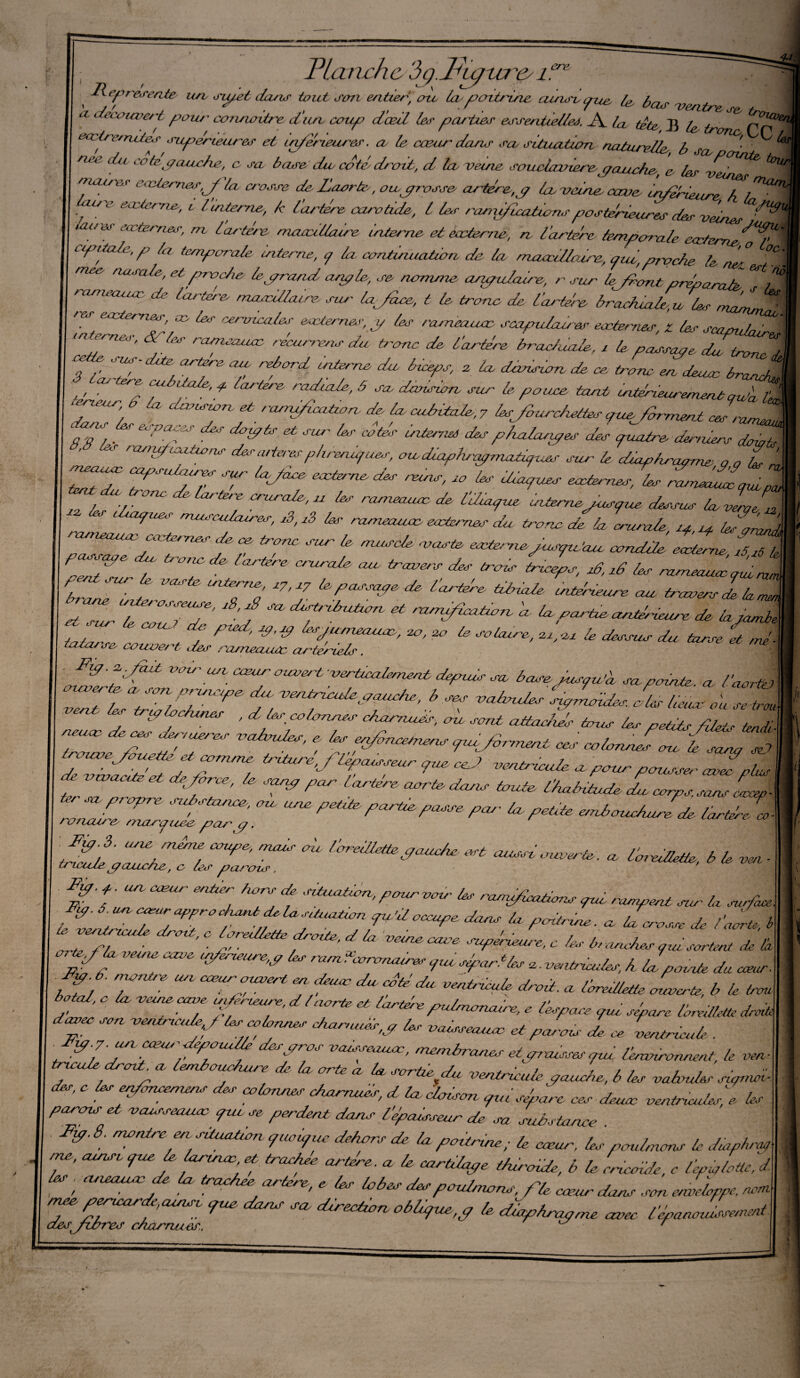 Planche 39. Figure 1.ere
Représente un sujet dans tout son entier, où la poitrine ainsi que le bas ventre se trouvent
à découvert pour connoître d'un coup d'œil les parties essentielles. A la tête, B le tronc, CC les
extrémités supérieures et inférieures. a le cœur dans sa situation naturelle, b sa pointe tour
née du côté gauche, c sa base du côté droit, d la veine souclavière gauche, e les veines mam
maires externes, f la crosse de L'aorte, ou grosse artère, g la veine cave inférieure, h la jugu
laire externe, i l'interne, k l'artère carotide, l les ramifications postérieures des veines jugu-
laires externes, m l'artère maxillaire interne et externe, n l'artère temporale externe, o l'oc-
cipitale, p la temporale interne, q la continuation de la maxillaire, qui, proche le nez est nom
mée nasale, et proche le grand angle, se nomme angulaire, r sur le front préparate, s les
rameaux de l'artère maxillaire sur la face, t le tronc de l'artère brachiale, u les mammai-
res externes, x les cervicales externes, y les rameaux scapulaires externes, z les scapulaires
internes, & les rameaux récurrens du tronc de l'artère brachiale, 1 le passage du tronc de
cette sus-dite artère au rebord interne du biceps, 2 la division de ce tronc en deux branches
3 l'artère cubitale, 4 l'artère radiale, 5 sa division sur le pouce tant intérieurement qu'à l'ex
térieur, 6 la division et ramification de la cubitale, 7 les fourchettes que forment ces rameaux
dans les espaces des doigts et sur les côtés internes des phalanges des quatre derniers doigts,
8,8 les ramifications des artères phréniques, ou diaphragmatiques sur le diaphragme, 9,9 les ra
meaux capsulaires sur la face externe des reins, 10 les iliaques externes, les rameaux qui par
tent du tronc de l'artère crurale, 11 les rameaux de l'iliaque interne jusque dessus la verge, 12,
12 les iliaques musculaires, 13,13 les rameaux externes du tronc de la crurale, 14,14 les grands
rameaux externes de ce tronc sur le muscle vaste externe jusqu'au condile externe, 15,15 le
passage du tronc de l'artère crurale au travers des trois triceps, 16,16 les rameaux qui ram
pent sur le vaste interne, 17,17 le passage de l'artère tibiale intérieure au travers de la mem
brane interosseuse, 18,18 sa distribution et ramification à la partie antérieure de la jambe
et sur le cou de pied, 19,19 les jumeaux, 20,20 le solaire, 21,21 le dessus du tarse et mé-
tatarse couvert des rameaux artériels.
Fig. 2, fait voir un cœur ouvert verticalement depuis sa base jusqu'à sa pointe. a l'aorte
ouverte à son principe du ventricule gauche, b ses valvules sigmoïdes. c les lieux où se trou
vent les triglochines, d les colonnes charnues, où sont attachés tous les petits filets tendi-
neux de ces dernieres valvules, e les enfoncemens qui forment ces colonnes où le sang se
trouve fouetté et comme trituré, f l'épaisseur que ce ventricule a pour pousser avec plus
de vivacité et de force, le sang par l'artère aorte dans toute l'habitude du corps, sans excep-
ter sa propre substance, où une petite partie passe par la petite embouchure de l'artère co-
ronaire marquée par g.
Fig. 3. une même coupe, mais où l'oreillette gauche est aussi ouverte. a l'oreillette, b le ven-
tricule gauche, c les parois.
Fig. 4. un cœur entier hors de situation, pour voir les ramifications qui rampent sur la surface.
Fig. 5. un cœur approchant de la situation qu'il occupe dans la poitrine. a la crosse de l'aorte, b
le ventricule droit, c l'oreillette droite, d la veine cave supérieure, e les branches qui sortent de la
orte, f la veine cave inférieure, g les ram.x coronaires qui sépar.t les 2. ventricules, h la pointe du cœur.
Fig. 6. montre un cœur ouvert en deux du côté du ventricule droit. a l'oreillette ouverte, b le trou
botal, c la veine cave inférieure, d l'aorte et l'artère pulmonaire, e l'espace qui sépare l'oreillette droite
d'avec son ventricule, f les colonnes charnues, g les vaisseaux et parois de ce ventricule.
Fig. 7. un cœur dépouillé des gros vaisseaux, membranes et graisses qui l'environnent, le ven-
tricule droit. a l'embouchure de la orte à la sortie du ventricule gauche, b les valvules sigmoï-
des, c les enfoncemens des colonnes charnues, d la cloison qui sépare ces deux ventricules, e les
parois et vaisseaux qui se perdent dans l'épaisseur de sa substance.
Fig. 8. montre en situation quoique dehors de la poitrine; le cœur, les poulmons le diaphrag-
me, ainsi que le larinx, et trachée artère. a le cartilage thiroïde, b le cricoïde, c l'épiglotte, d
les anneaux de la trachée artère, e les lobes des poulmons, f le cœur dans son enveloppe, nom
mée pericarde, ainsi que dans sa direction oblique, g le diaphragme avec l'épanouissement
des fibres charnues.